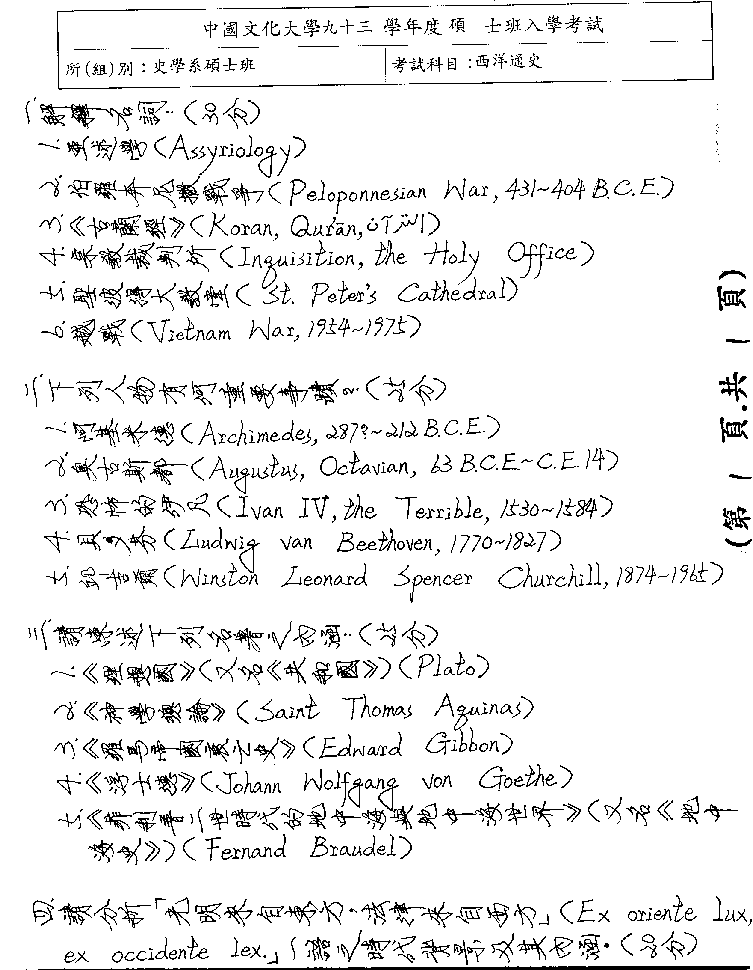 中國文化大學九十三 學年度 碩 士班入學考試
所(組)別:史學系碩士班 考試科目:西洋通史
一、解釋名詞:(30分)
1.亞述學(Assyriology)
2.伯羅奔尼撒戰爭(Peloponnesian War, 431~404 B.C.E.)
3.《古蘭經》(Koran, Qur'ān, القرآن)
4.宗教裁判所(Inquisition, the Holy Office)
5.聖彼得大教堂(St. Peter's Cathedral)
6.越戰(Vietnam War, 1954~1975)
二、下列人物有何重要事蹟?(25分)
1.阿基米德(Archimedes, 287?~212 B.C.E.)
2.奧古斯都(Augustus, Octavian, 63 B.C.E.~C.E.14)
3.恐怖的伊凡(Ivan IV, the Terrible, 1530~1584)
4.貝多芬(Ludwig van Beethoven, 1770~1827)
5.邱吉爾(Winston Leonard Spencer Churchill, 1874~1965)
三、請陳述下列名著之內涵:(25分)
1.《理想國》(又名《共和國》)(Plato)
2.《神學總論》(Saint Thomas Aquinas)
3.《羅馬帝國衰亡史》(Edward Gibbon)
4.《浮士德》(Johann Wolfgang von Goethe)
5.《菲利普二世時代的地中海與地中海世界》(又名《地中
海史》)(Fernand Braudel)
四、請分析「光明來自東方,法律來自西方」(Ex oriente lux,
ex occidente lex.」一語之時代背景及其內涵。(20分)
(第 1 頁.共 1 頁)